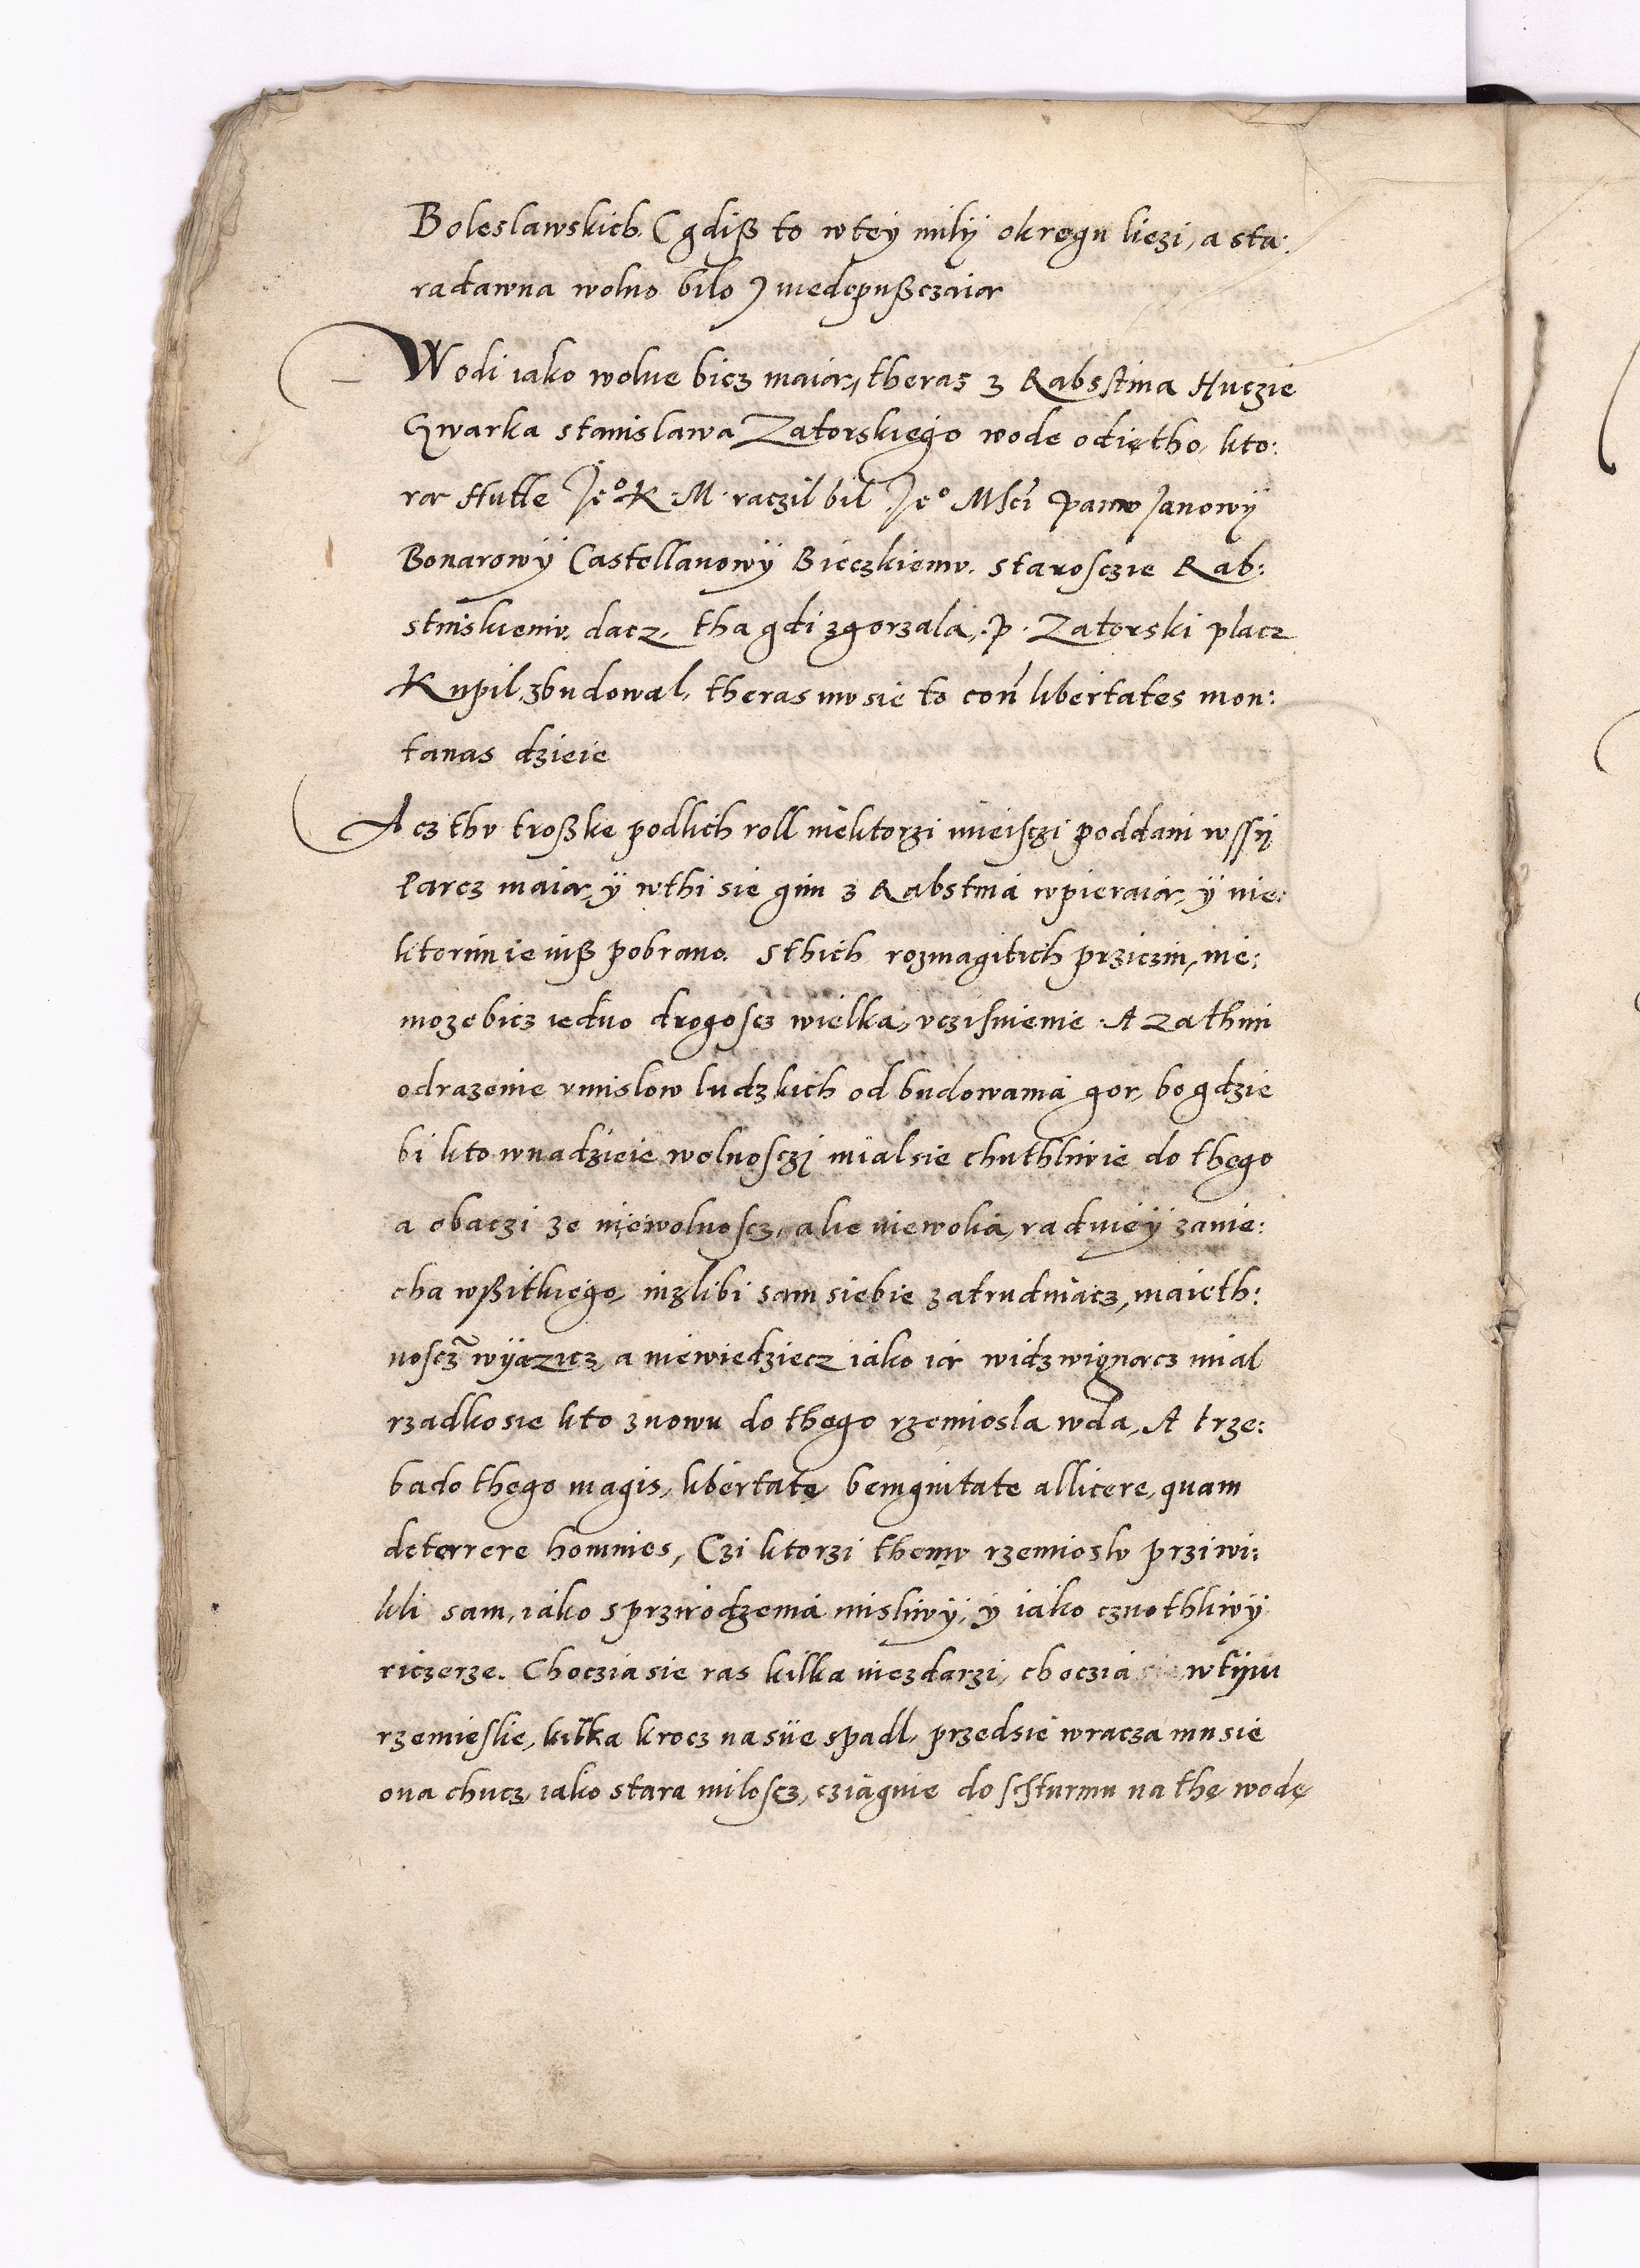 Boleslawskich. (gdiß to wtey milÿ okregu liezi, a sta:
radawna wolno bilo) niedopußczaią
Wodi iako wolne bicz maią, theras z Rabsstina Huczie
Gwarka stanislawa Zatorskiego wode odiętho, kto:
rą Hutte Je° K. M. raczil bil Je° Msći panw Janowÿ
Bonarowÿ Castellanowÿ Bieczkiemv. starosczie Rab:
stinskiemv. dacz. tha gdi zgorzala, .p. Zatorski placz
Kupil, zbudowal, theras mv sie to coń libertates mon:
tanas dzieie
Acz thv troßke podlich roll niektorzi mieisczi poddani wssÿ
Parcz maią, ÿ wthi sie gim z Rabstina wpieraią, ÿ nie:
ktorim ie iuß pobrano. Sthich rozmagitich prziczin, nie:
moze bicz iedno drogoscz wielka, vczisnienie. A zathim
odrazenie vmislow ludzkich od budowania gor, bo gdzie
bi kto wnadzieie wolnosczi mial sie chuthliwie do thego
a obaczi ze niewolnoscz, ale niewolia, radnieÿ zanie:
cha wßitkiego, nizlibi sam siebie zatrudniacz, maieth:
noscz wÿazicz, a niewiedziecz iako ią widzwignącz mial
rzadko sie kto znowu do thego rzemiosla wda, A trze:
ba do thego magis, libertate benignitate allicere, quam
deterrere homines, Czi ktorzi themv rzemioslv prziwi:
kli sam, iako sprzirodzenia misliwÿ, ÿ iako cznothliwÿ
riczerze. Choczia sie ras kilka niezdarzi, choczia sie wtÿm
rzemieslie, kilka krocz na siie spadl, przedsie wracza mu sie
ona chucz, iako stara miloscz, cziągnie do schturmu na thę wodę